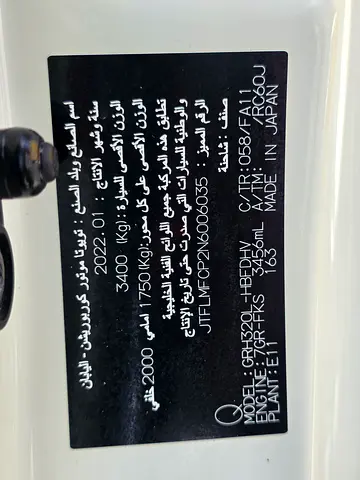 اسم الصانع وبلد الصنع : تويوتا موتور كوربوريشن - اليابان
سنة وشهر الإنتاج : 2022.01
الوزن الأقصى للسيارة : (Kg) 3400
الوزن الأقصى على كل محور: (Kg) 1750 امامي 2000 خلفي
تطابق هذه المركبة جميع اللوائح الفنية الخليجية
والوطنية للسيارات التي صدرت حتى تاريخ الإنتاج
الرقم المميز : JTFLMFCP2N6006035
صنف : شاحنة
MODEL: GRH320L-HBFDHV C/TR: 058/FA11
ENGINE: 7GR-FKS 3456mL A/TM: /RC60J
PLANT: E11 163 MADE IN JAPAN